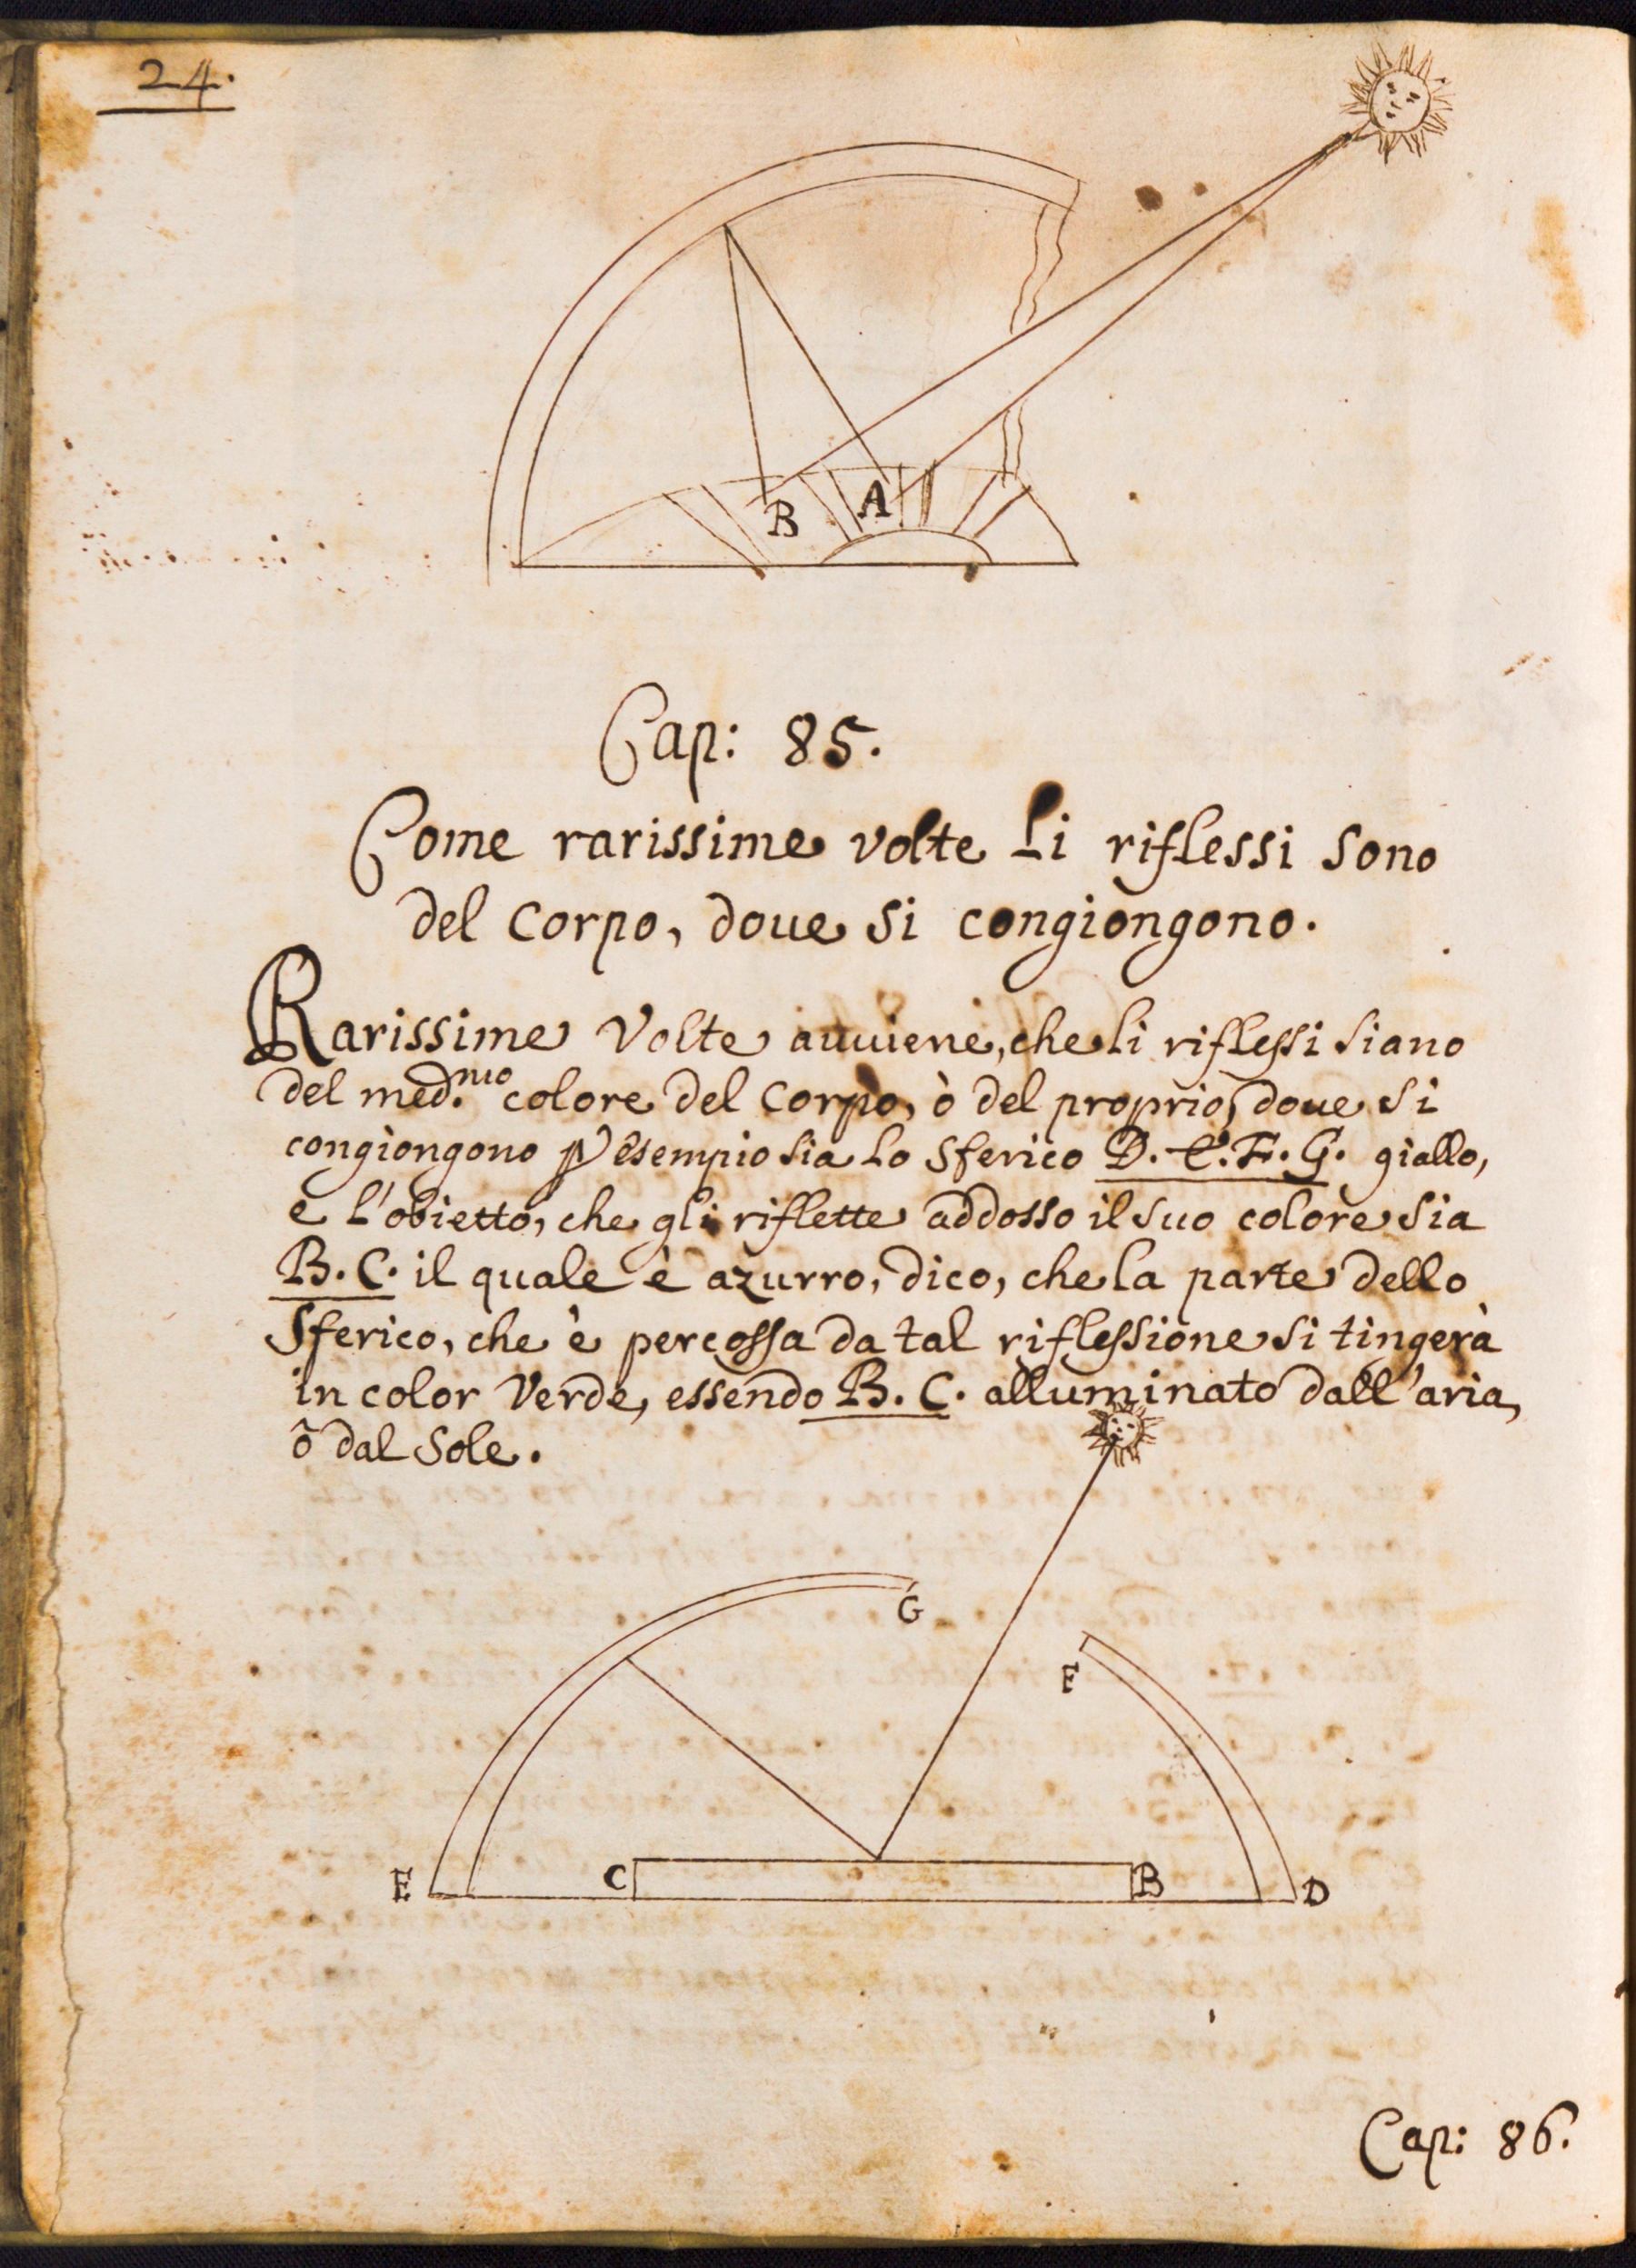 24.
B A
Cap: 85.
Come rarissime volte li riflessi sono
del corpo, doue si congiongono.
Rarissime Volte auuiene, che li riflessi siano
del med.mo colore del corpo, ò del proprio, doue si
congiongono p esempio sia lo Sferico D. E. F. G. giallo,
e l'obietto, che gli riflette addosso il suo colore sia
B. C. il quale è azurro, dico, che la parte dello
Sferico, che è percossa da tal riflessione si tingerà
in color Verde, essendo B. C. alluminato dall'aria,
ò dal Sole.
G
F
E C B D
Cap: 86.